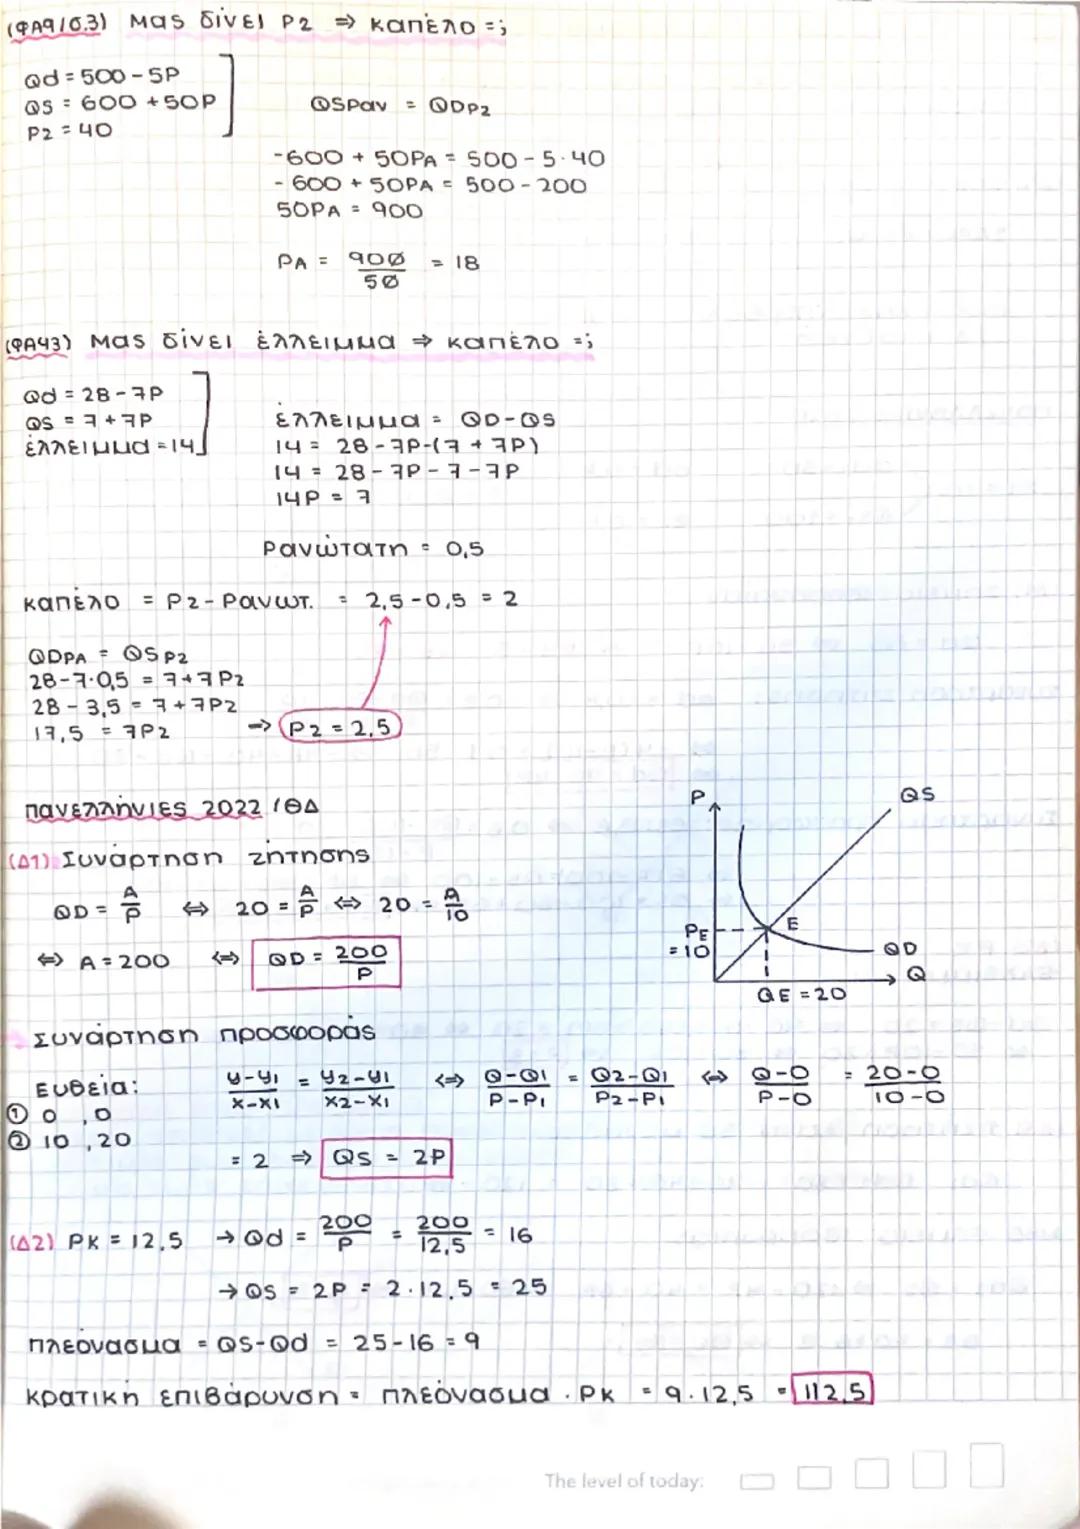 (ΦΑ9/σ.3) Μας δίνει P2 ⇒ καπέλο =;
Qd = 500 - 5P
QS = 600 + 50P
P2 = 40
QSPαν = QDP2
-600 + 50PA = 500 - 5·40
-600 + 50PA = 500 - 200
50PA = 900
PA = 900/50 = 18
(ΦΑ43) Μας δίνει έλλειμμα ⇒ καπέλο =;
Qd = 28 - 7P
QS = 7 + 7P
έλλειμμα = 14
έλλειμμα = QD - QS
14 = 28 - 7P - (7 + 7P)
14 = 28 - 7P - 7 - 7P
14P = 7
Pανώτατη = 0,5
καπέλο = P2 - Pανωτ. = 2,5 - 0,5 = 2
QDPA = QSP2
28 - 7·0,5 = 7 + 7P2
28 - 3,5 = 7 + 7P2
17,5 = 7P2 ⇒ P2 = 2,5
Πανελλήνιες 2022 / ΘΔ
(Δ1) Συνάρτηση ζήτησης
QD = A/P ⇔ 20 = A/P ⇔ 20 = A/10
⇔ A = 200 ⇔ QD = 200/P
P
QS
E
PE = 10
QD
Q
QE = 20
Συνάρτηση προσφοράς
Ευθεία:
① 0 , 0
② 10 , 20
y-y1/x-x1 = y2-y1/x2-x1 ⇔ Q-Q1/P-P1 = Q2-Q1/P2-P1 ⇔ Q-0/P-0 = 20-0/10-0
= 2 ⇒ QS = 2P
(Δ2) PK = 12,5 → Qd = 200/P = 200/12,5 = 16
→ QS = 2P = 2·12,5 = 25
πλεόνασμα = QS - Qd = 25 - 16 = 9
κρατική επιβάρυνση = πλεόνασμα · PK = 9·12,5 = 112,5
The level of today: